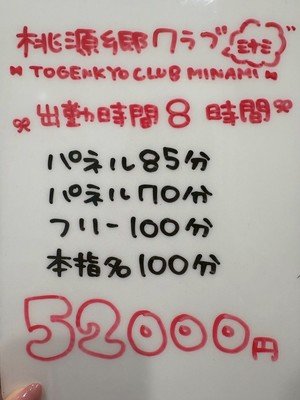 桃源郷クラブ ミナミ
TOGENKYO CLUB MINAMI
出勤時間8時間
パネル85分
パネル70分
フリー100分
本指名100分
52000円